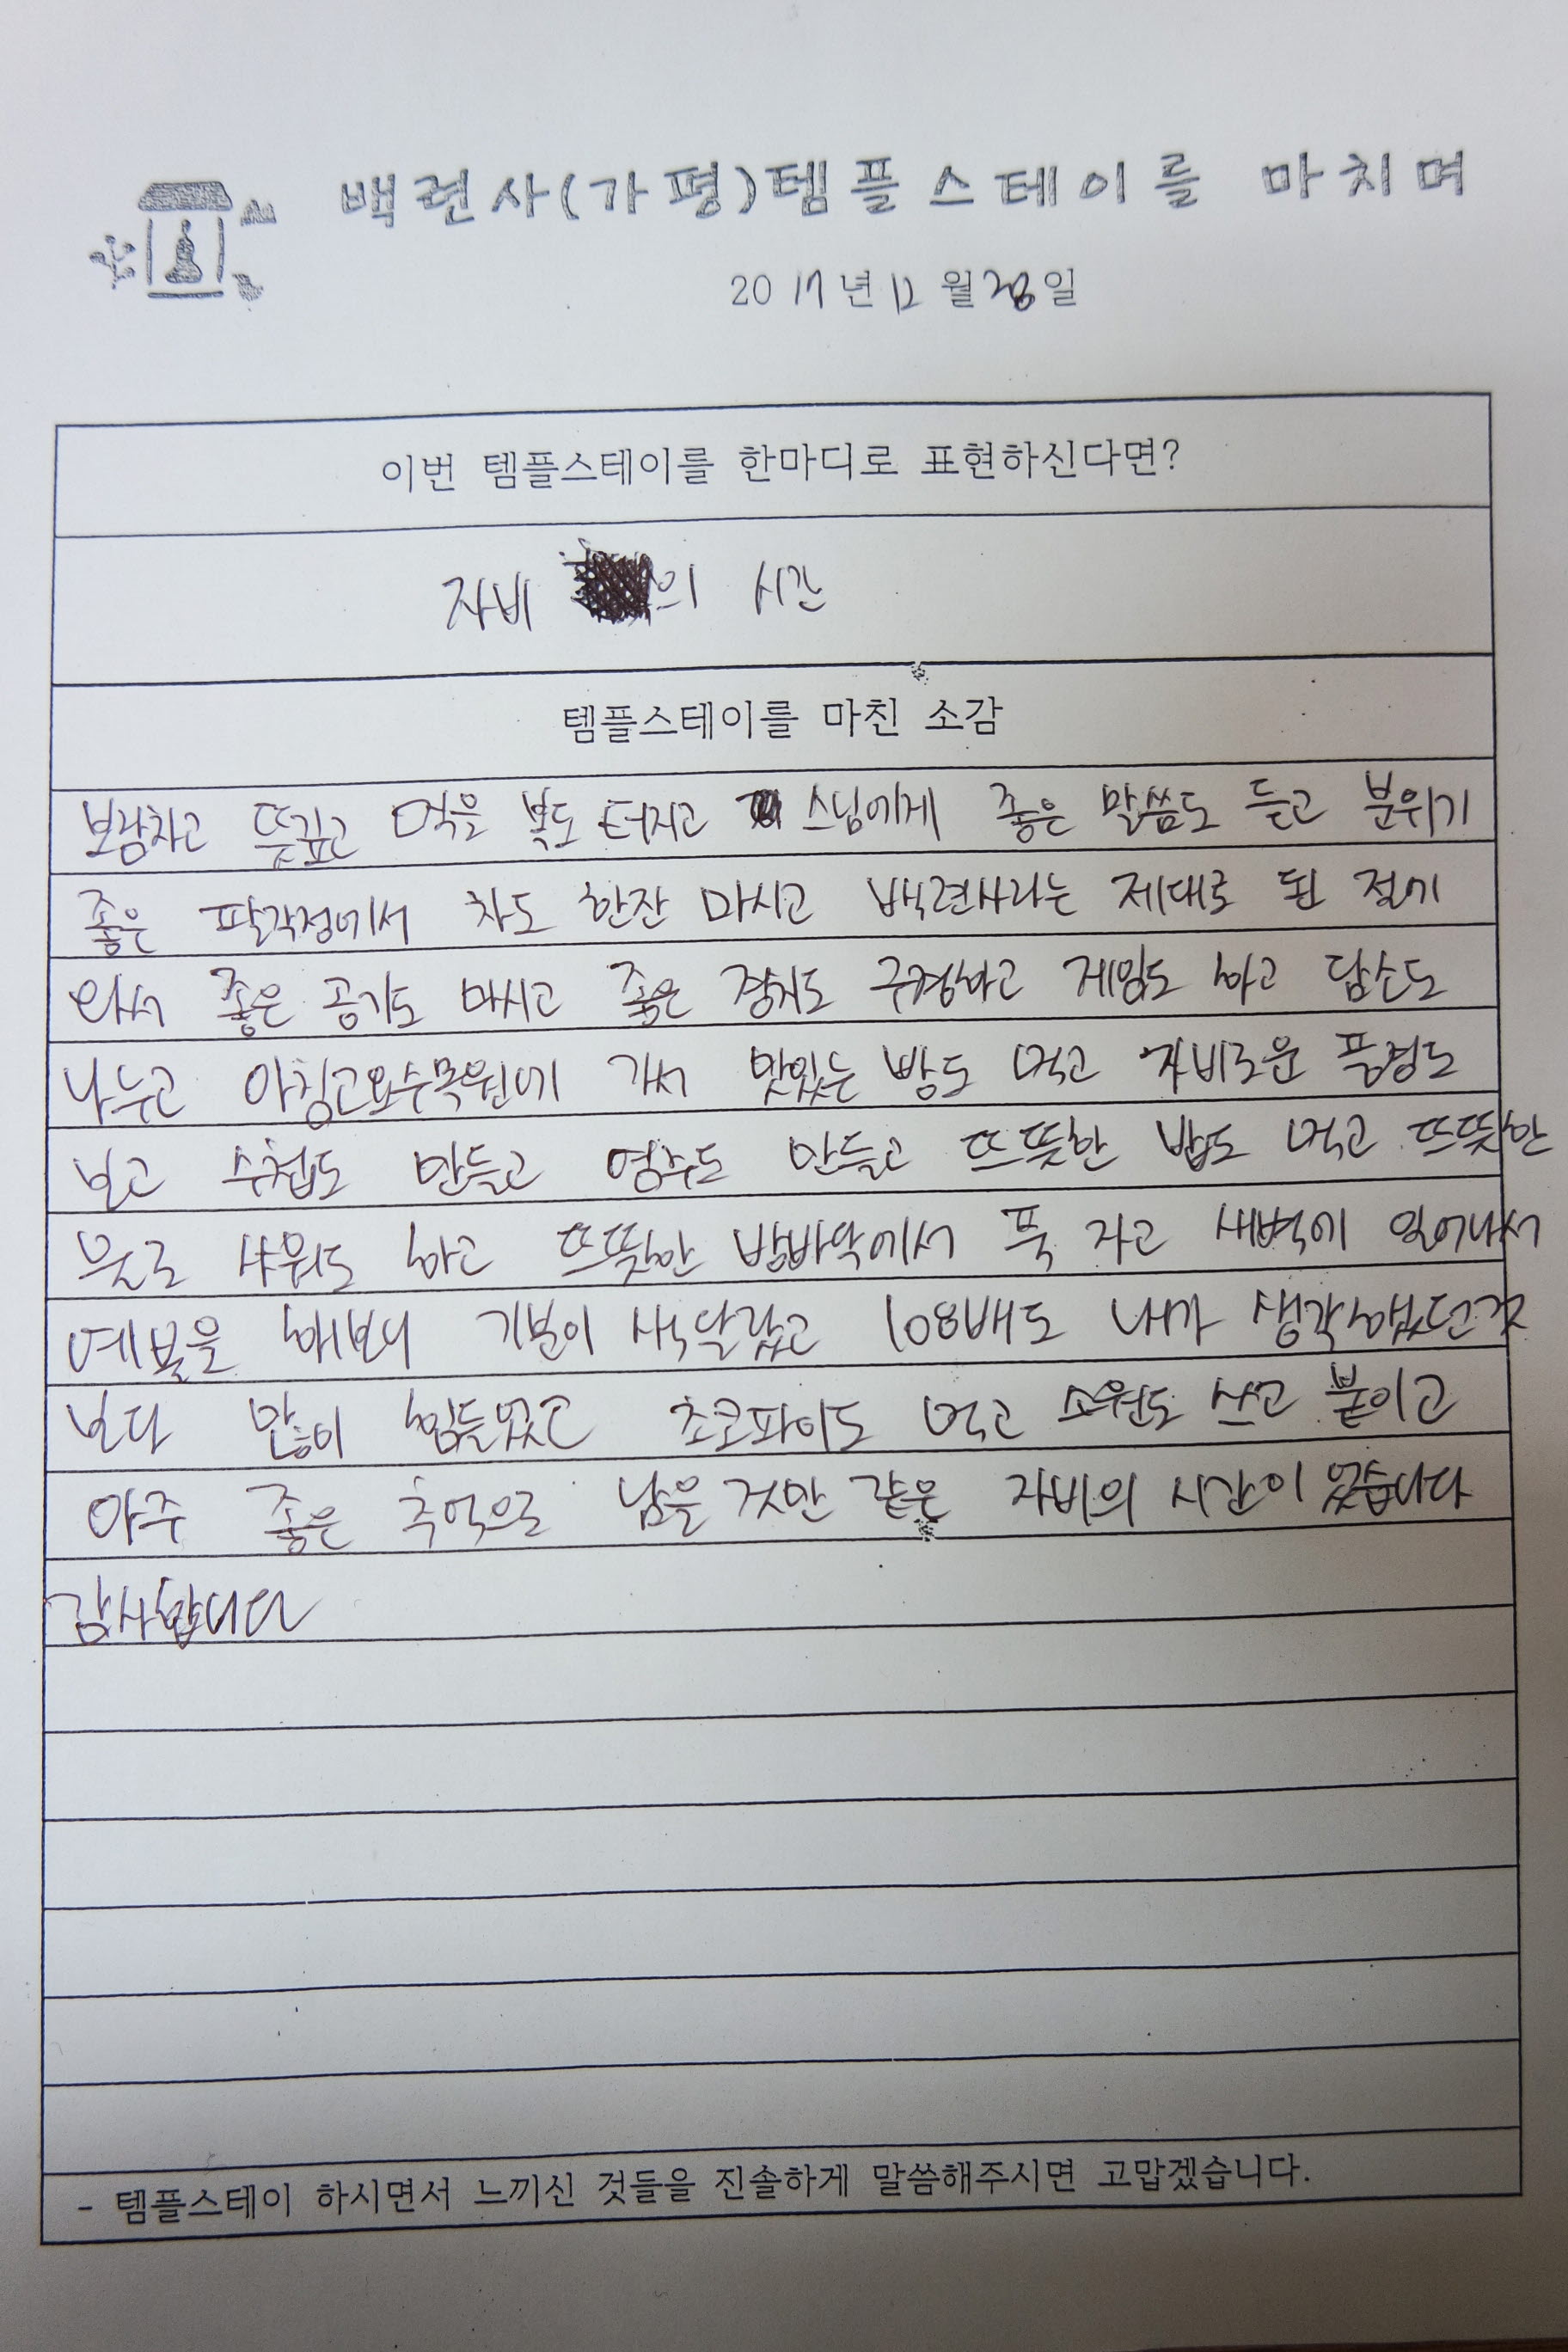 백련사(가평)템플스테이를 마치며
2017년 12월 28일
이번 템플스테이를 한마디로 표현하신다면?
자비 의 시간
템플스테이를 마친 소감
보람차고 뜻깊고 먹을 복도 터지고 스님에게 좋은 말씀도 듣고 분위기
좋은 팔각정에서 차도 한잔 마시고 백련사라는 제대로 된 절에
와서 좋은 공기도 마시고 좋은 경치도 구경하고 게임도 하고 담소도
나누고 아침고요수목원에 가서 맛있는 밥도 먹고 자비로운 풍경도
보고 수첩도 만들고 염주도 만들고 뜨뜻한 밥도 먹고 뜨뜻한
물로 샤워도 하고 뜨뜻한 방바닥에서 푹 자고 새벽에 일어나서
예불을 해보니 기분이 색달랐고 108배도 내가 생각했던것
보다 많이 힘들었고 초코파이도 먹고 소원도 쓰고 붙이고
아주 좋은 추억으로 남을 것만 같은 자비의 시간이었습니다
감사합니다
- 템플스테이 하시면서 느끼신 것들을 진솔하게 말씀해주시면 고맙겠습니다.